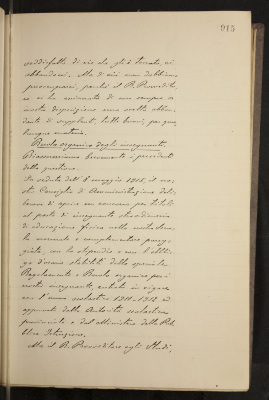 915
soddisfatto di ciò che gli è toccato, ci
abbandoni. Ma di ciò non dobbiamo
preoccuparci, perchè il R. Provvedito-
re ci ha assicurato di aver sempre a
nostra disposizione una scelta abbon-
dante di supplenti, tutti buoni, per qua-
lunque materia.
Ruolo organico degli insegnanti.
Riassumiamo brevemente i precedenti
della questione.
In seduta dell' 8 maggio 1915, il no-
stro Consiglio di Amministrazione deli-
berava di aprire un concorso per titoli
al posto di insegnante straordinario
di educazione fisica nella nostra Scuo-
la normale e complementare pareg-
giata, con lo stipendio e con l'obbli-
go d'orario stabiliti dallo speciale
Regolamento e Ruolo organico per i
nostri insegnanti, entrato in vigore
con l'anno scolastico 1911-1912 ed
approvato dalle Autorità scolastiche
provinciali e dal Ministero della Pub-
blica Istruzione.
Ma il R. Provveditore agli Studi,